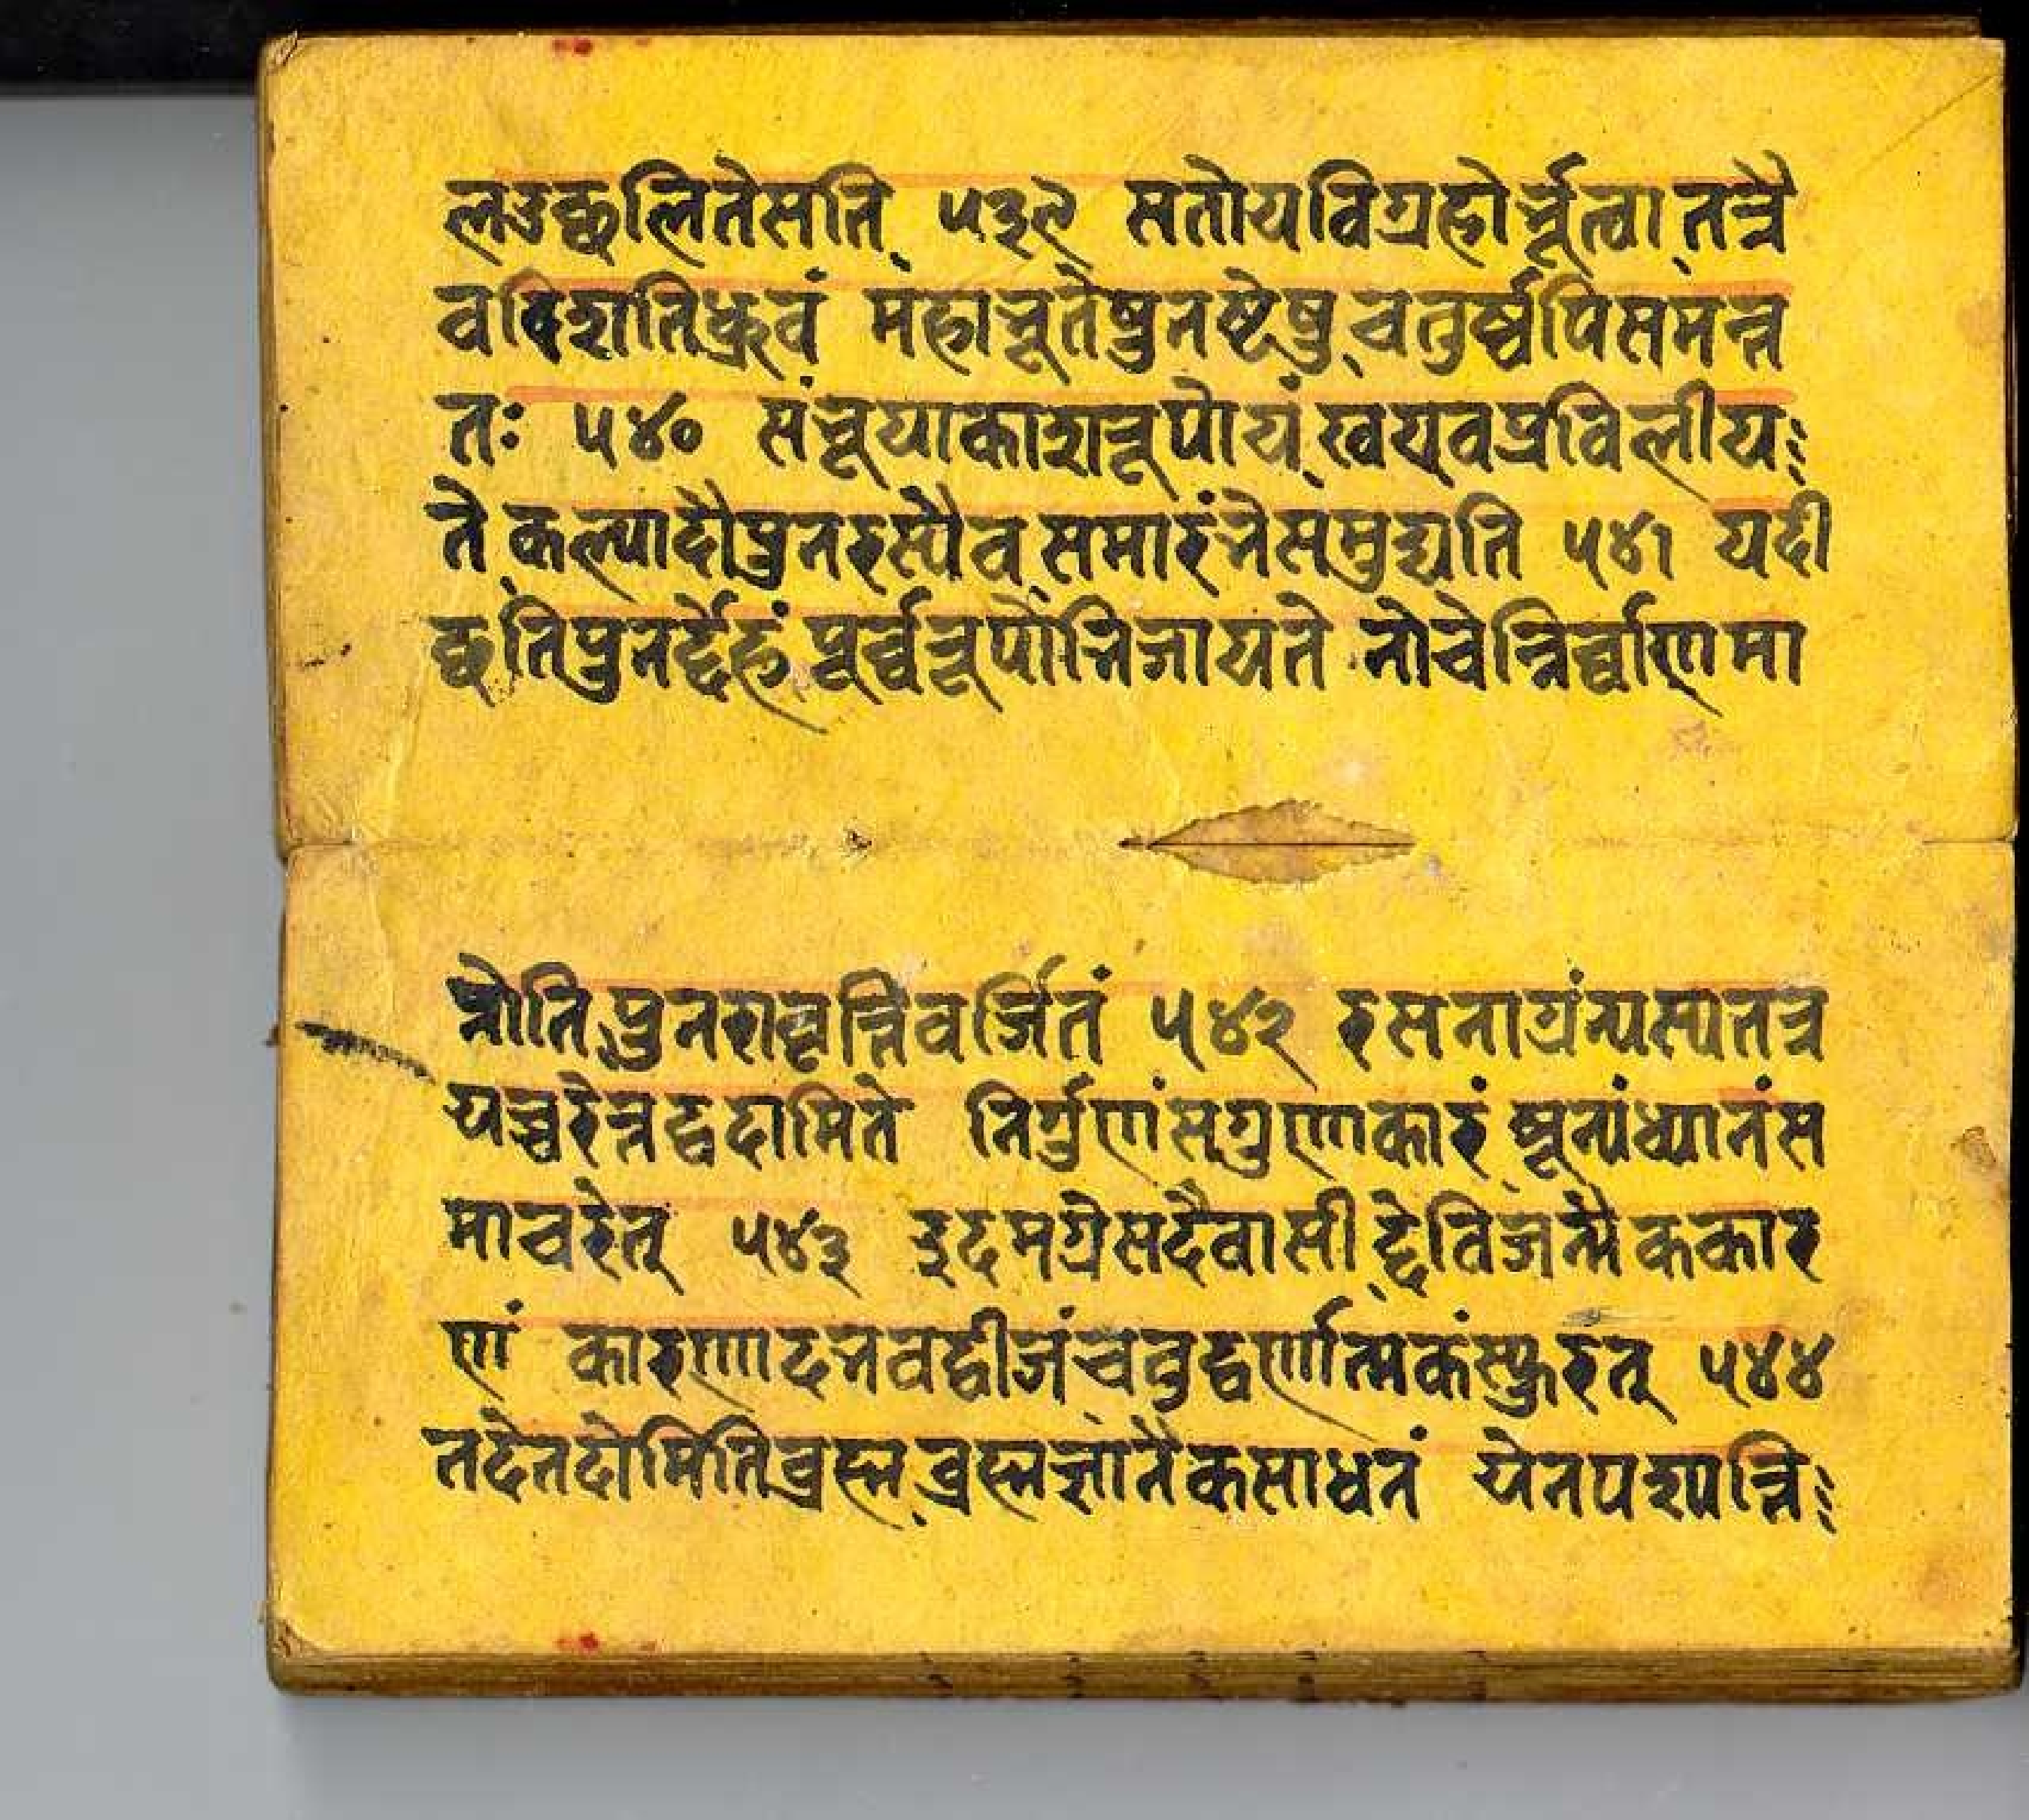 लउच्छलितेसति ५३९ सतोयविग्रहोर्भूत्वा तत्रै
वविशतिध्रुवं महाभूतेषुनष्टेषुचतुर्ष्वपिसमन्त
तः ५४० संभूयाकाशभूपोयं खयवप्रविलीय
ते कल्पादौपुनरुस्पैव समारंभेसमुद्यति ५४१ यदी
छतिपुनर्द्देहं पूर्व्वभूपोभिजायते नोचेन्निर्व्वाणमा
प्नोतिपुनरावृत्तिवर्जितं ५४२ रुसनाग्रंन्यस्यतत्र
यच्चरेत्तद्वदामिते निर्गुणंसगुणाकारं शून्यंध्यानंस
माचरेत् ५४३ इदमग्रेसदैवासीद्देतिजन्मैककार
णं कारणादनवद्वीजंचवुद्वर्णात्मकंस्फुरुत् ५४४
तदेतदोमितिब्रह्म ब्रह्मज्ञानैकसाधनं येनपश्यन्ति